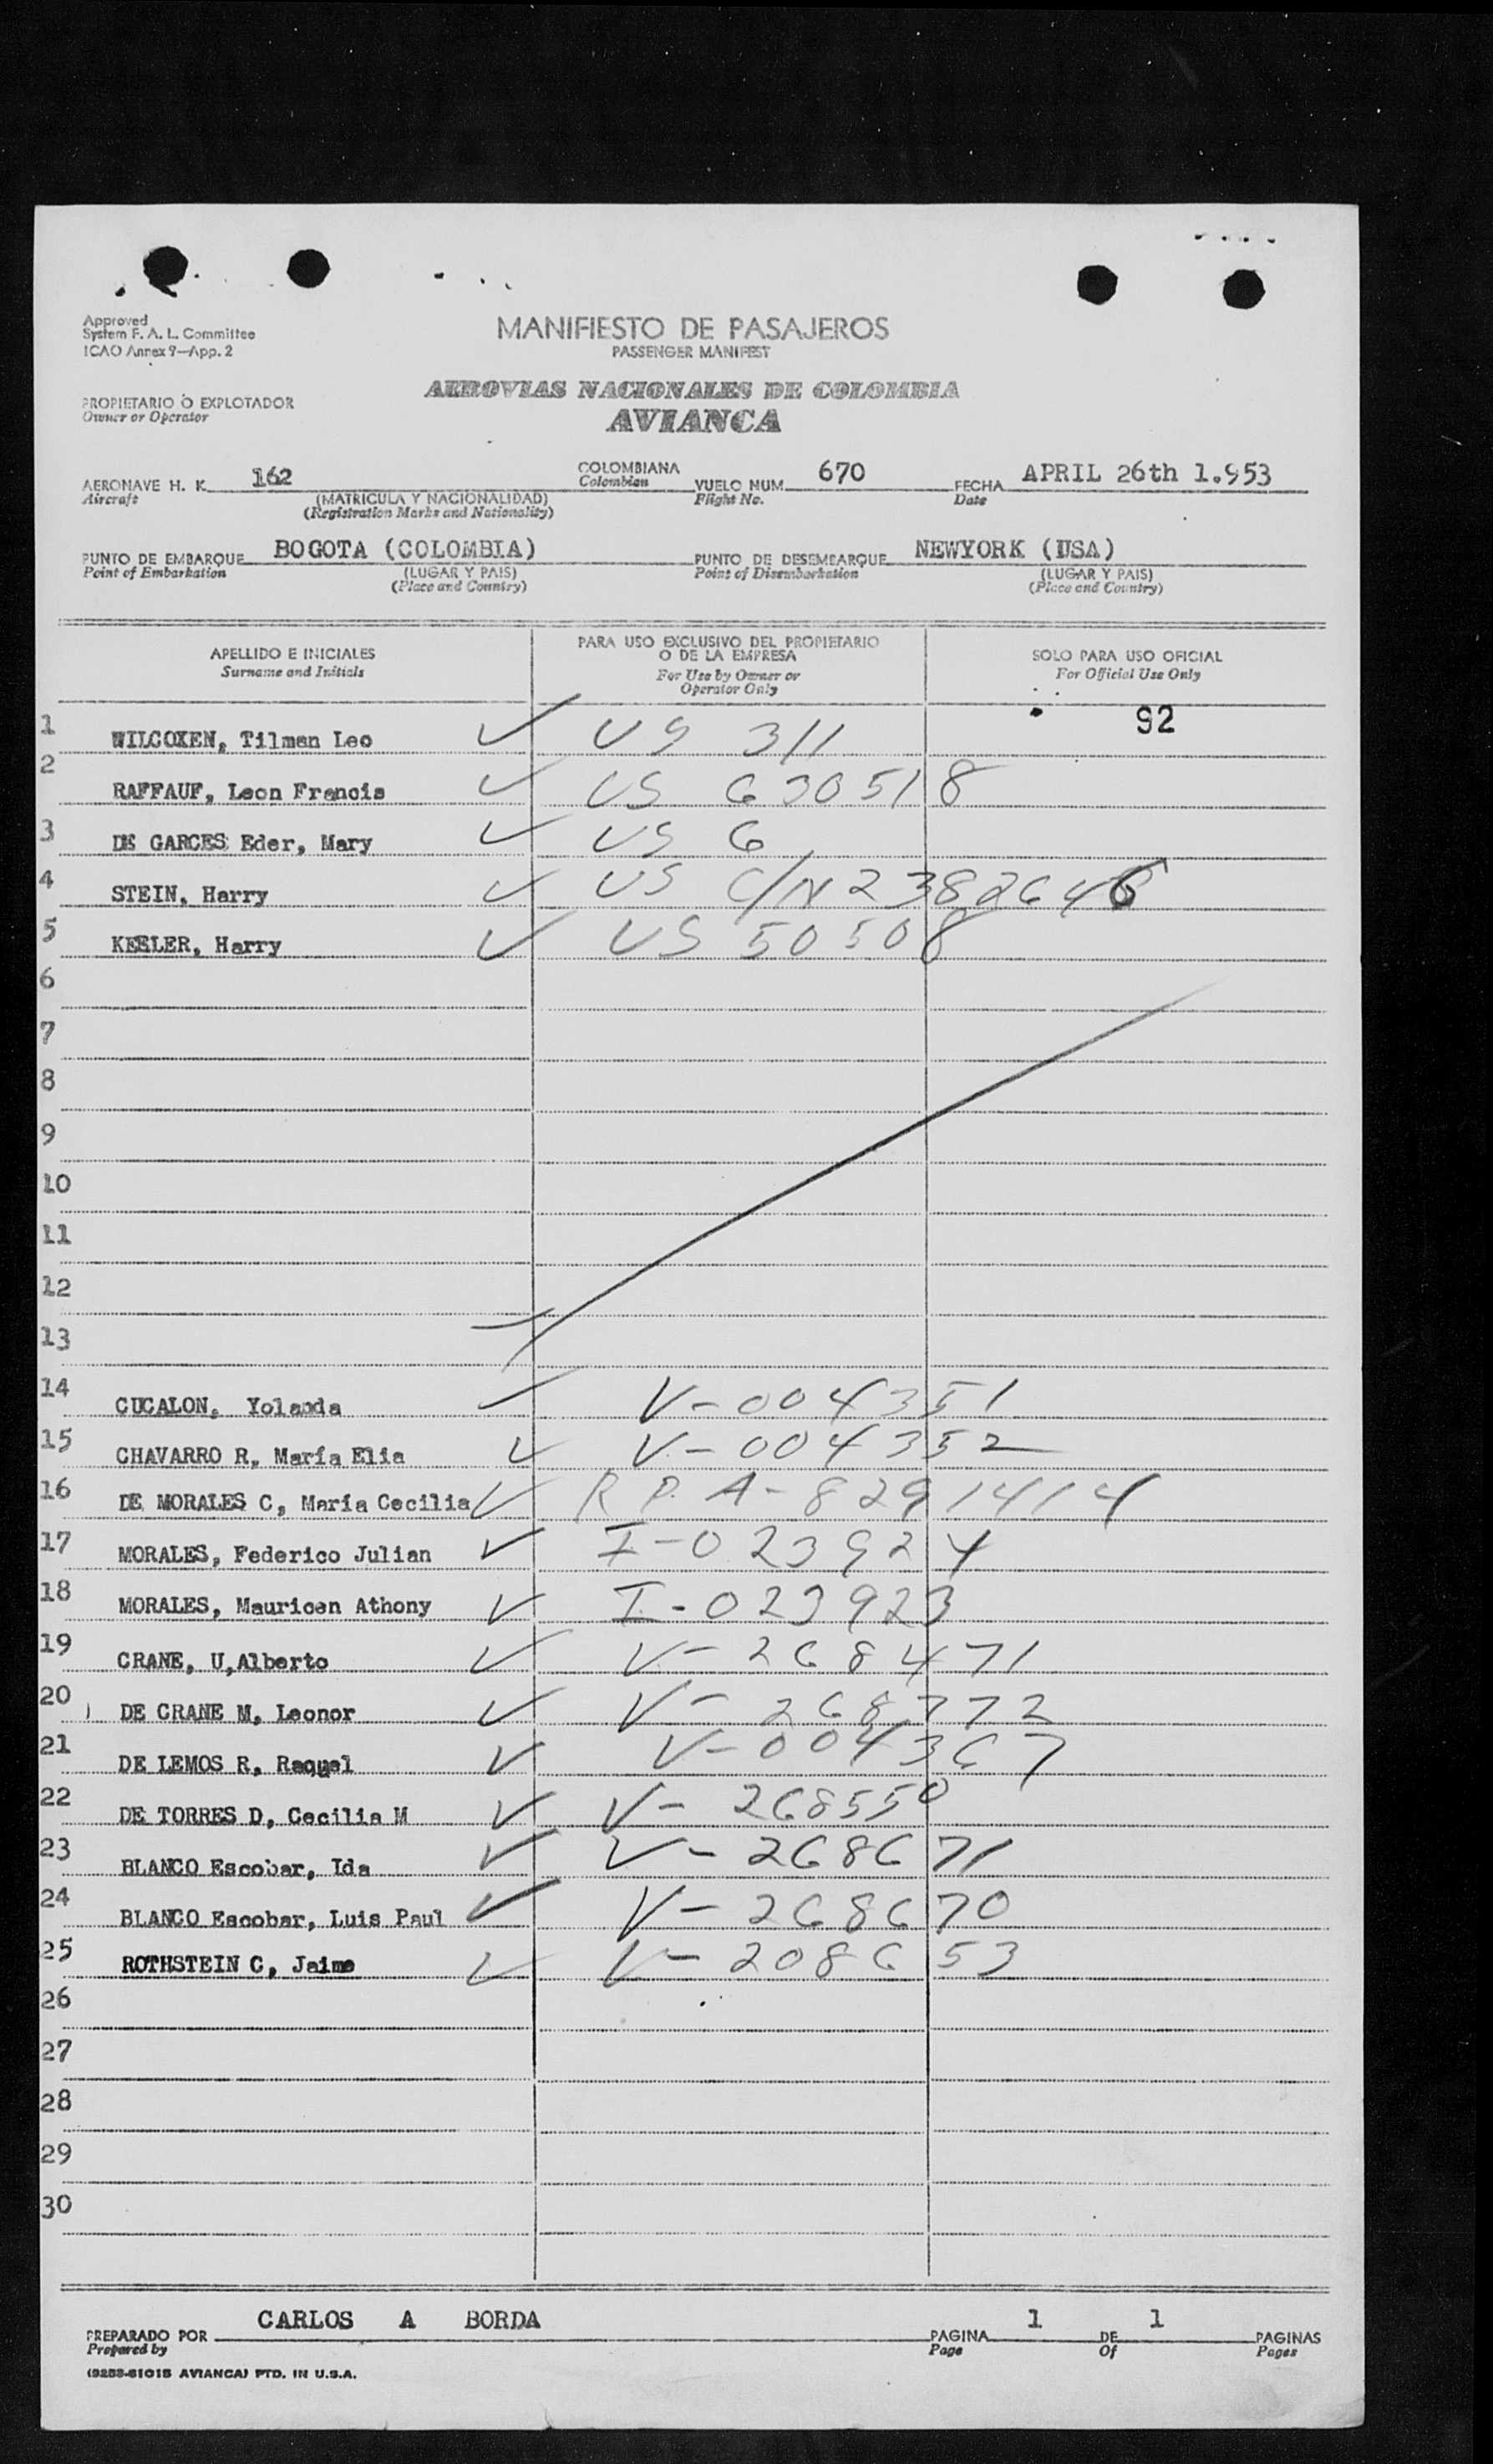 Approved
System F. A. L. Committee
ICAO Annex 9—App. 2
MANIFIESTO DE PASAJEROS
PASSENGER MANIFEST
PROPIETARIO O EXPLOTADOR
Owner or Operator
AEROVIAS NACIONALES DE COLOMBIA
AVIANCA
AERONAVE H. K. 162 COLOMBIANA VUELO NUM. 670 FECHA APRIL 26th 1.953
Aircraft (MATRICULA Y NACIONALIDAD) Colombian Flight No. Date
(Registration Marks and Nationality)
PUNTO DE EMBARQUE BOGOTA (COLOMBIA) PUNTO DE DESEMBARQUE NEWYORK (USA)
Point of Embarkation (LUGAR Y PAIS) Point of Disembarkation (LUGAR Y PAIS)
(Place and Country) (Place and Country)
APELLIDO E INICIALES
Surname and Initials
PARA USO EXCLUSIVO DEL PROPIETARIO
O DE LA EMPRESA
For Use by Owner or
Operator Only
SOLO PARA USO OFICIAL
For Official Use Only
92
1 WILCOXEN, Tilman Leo ✓ US 311
2 RAFFAUF, Leon Francis ✓ US 630518
3 DE GARCES Eder, Mary ✓ US G
4 STEIN, Harry ✓ US C/N 2382646
5 KESLER, Harry ✓ US 50508
6
7
8
9
10
11
12
13
14 CUCALON, Yolanda V-004351
15 CHAVARRO R, María Elia ✓ V-004352
16 DE MORALES C, María Cecilia ✓ R P. A-8291414
17 MORALES, Federico Julian ✓ I-023924
18 MORALES, Mauricen Athony ✓ I-023923
19 CRANE, U,Alberto ✓ V-268471
20 DE CRANE M, Leonor ✓ V-268772
21 DE LEMOS R, Raquel ✓ V-004367
22 DE TORRES D, Cecilia M ✓ V-268550
23 BLANCO Escobar, Ida ✓ V-268671
24 BLANCO Escobar, Luis Paul ✓ V-268670
25 ROTHSTEIN C, Jaime ✓ V-208653
26
27
28
29
30
PREPARADO POR CARLOS A BORDA PAGINA 1 DE 1 PAGINAS
Prepared by Page Of Pages
(9253-6101B AVIANCA) PTD. IN U.S.A.